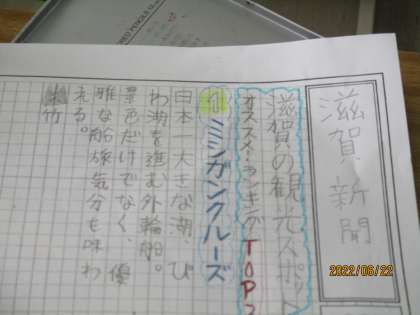 滋賀新聞
滋賀の観光スポット
オススメ・ランキングTOP
1 ミシガンクルーズ
日本一大きな湖、び
わ湖を進む外輪船。
景色だけでなく、優
雅な船旅気分も味わ
える。
竹
2022/06/22